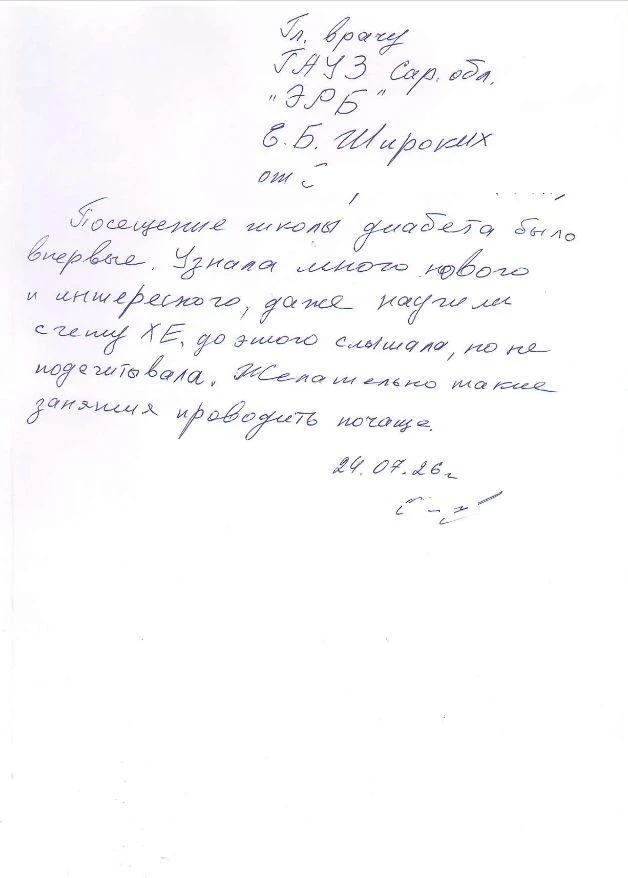 Гл. врачу
ГАУЗ Сар. обл.
"ЭРБ"
Е.Б. Широких
от
Посещение школы диабета было
впервые. Узнала много нового
и интересного, даже научили
счету ХЕ, до этого слышала, но не
подсчитывала. Желательно такие
занятия проводить почаще.
24.07.26г